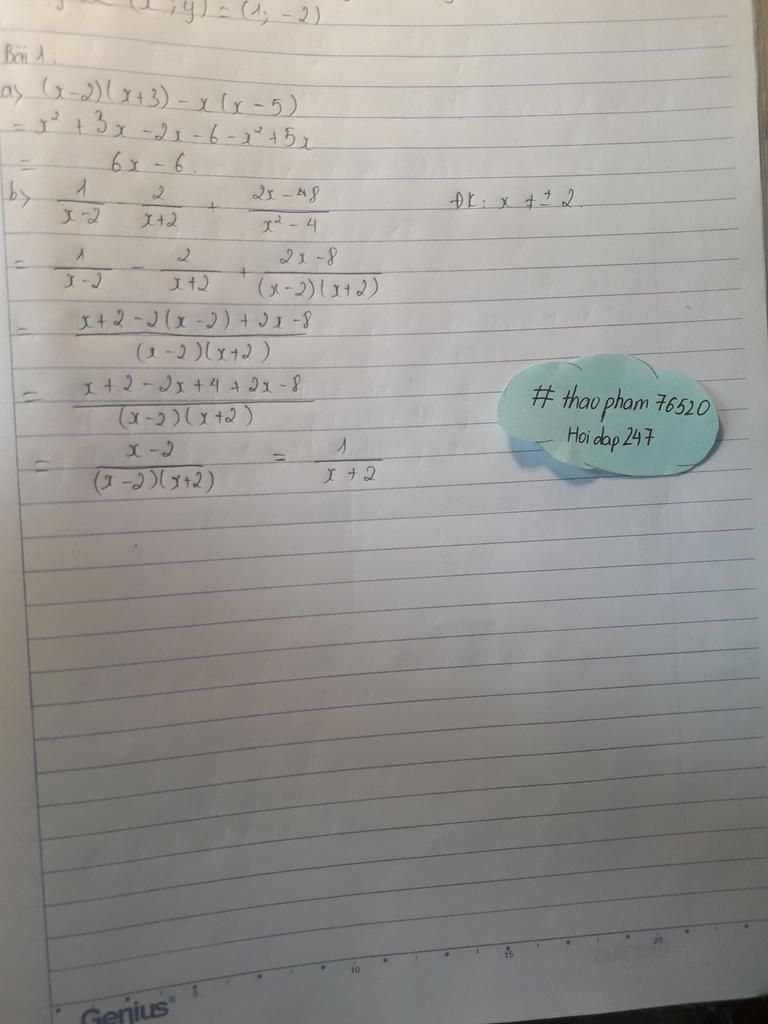 (x; y) = (1; -2)
Bài 1:
a> (x-2)(x+3) - x(x-5)
= x² + 3x - 2x - 6 - x² + 5x
= 6x - 6.
b> 1/(x-2) - 2/(x+2) + (2x-8)/(x²-4) ĐK: x ≠ ± 2.
= 1/(x-2) - 2/(x+2) + (2x-8)/((x-2)(x+2))
= (x+2-2(x-2)+2x-8)/((x-2)(x+2))
= (x+2-2x+4+2x-8)/((x-2)(x+2))
= (x-2)/((x-2)(x+2)) = 1/(x+2)
# thaopham 76520
Hoidap 247
5 10 15 20
Genius